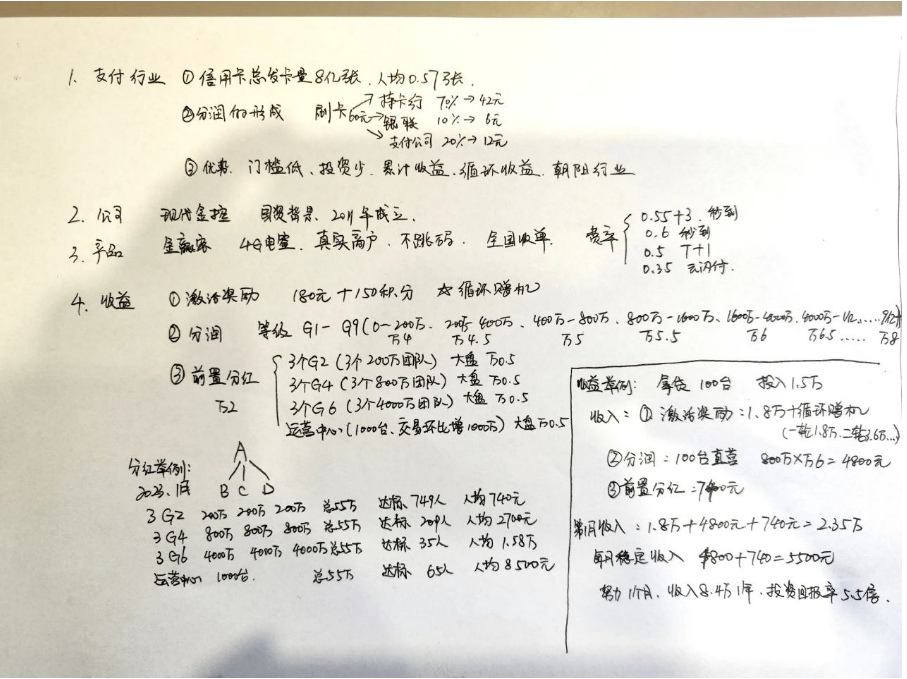 1. 支付行业 ①信用卡总发卡量8亿张、人均0.57张.
②分润的形成 刷卡60元→ 持卡行 70%→42元
银联 10%→6元
支付公司 20%→12元
③优势. 门槛低、投资少、累计收益、循环收益、朝阳行业
2. 公司 现代金控 国资背景、2011年成立.
3. 产品 金融家 4G电签、真实商户、不跳码、全国收单. 费率
0.55+3 秒到
0.6 秒到
0.5 T+1
0.35 云闪付.
4. 收益 ①激活奖励 180元+150积分 ☆循环赠机
②分润 等级 G1-G9(0-200万、200万-400万、400万-800万、800万-1600万、1600万-4000万、4000万-1亿......9亿+
万4 万4.5 万5 万5.5 万6 万6.5 ..... 万8
③前置分红 万2
3个G2(3个200万团队)大盘 万0.5
3个G4(3个800万团队)大盘 万0.5
3个G6(3个4000万团队)大盘 万0.5
运营中心(1000台、交易环比增1000万)大盘万0.5
分红举例:
2023.1月
A
B C D
3G2 200万 200万 200万 总55万 达标 749人 人均740元
3G4 800万 800万 800万 总55万 达标 209人 人均2700元
3G6 4000万 4000万 4000万 总55万 达标 35人 人均1.58万
运营中心 1000台. 总55万 达标 65人 人均8500元
收益举例: 拿货100台 投入1.5万
收入: ①激活奖励:1.8万+循环赠机
(一轮1.8万.二轮3.6万...)
②分润:100台直营 800万×万6=4800元
③前置分红:740元
第1月收入:1.8万+4800元+740元=2.35万
每月稳定收入 4800+740=5500元
努力1个月、收入8.4万1年、投资回报率5.5倍.